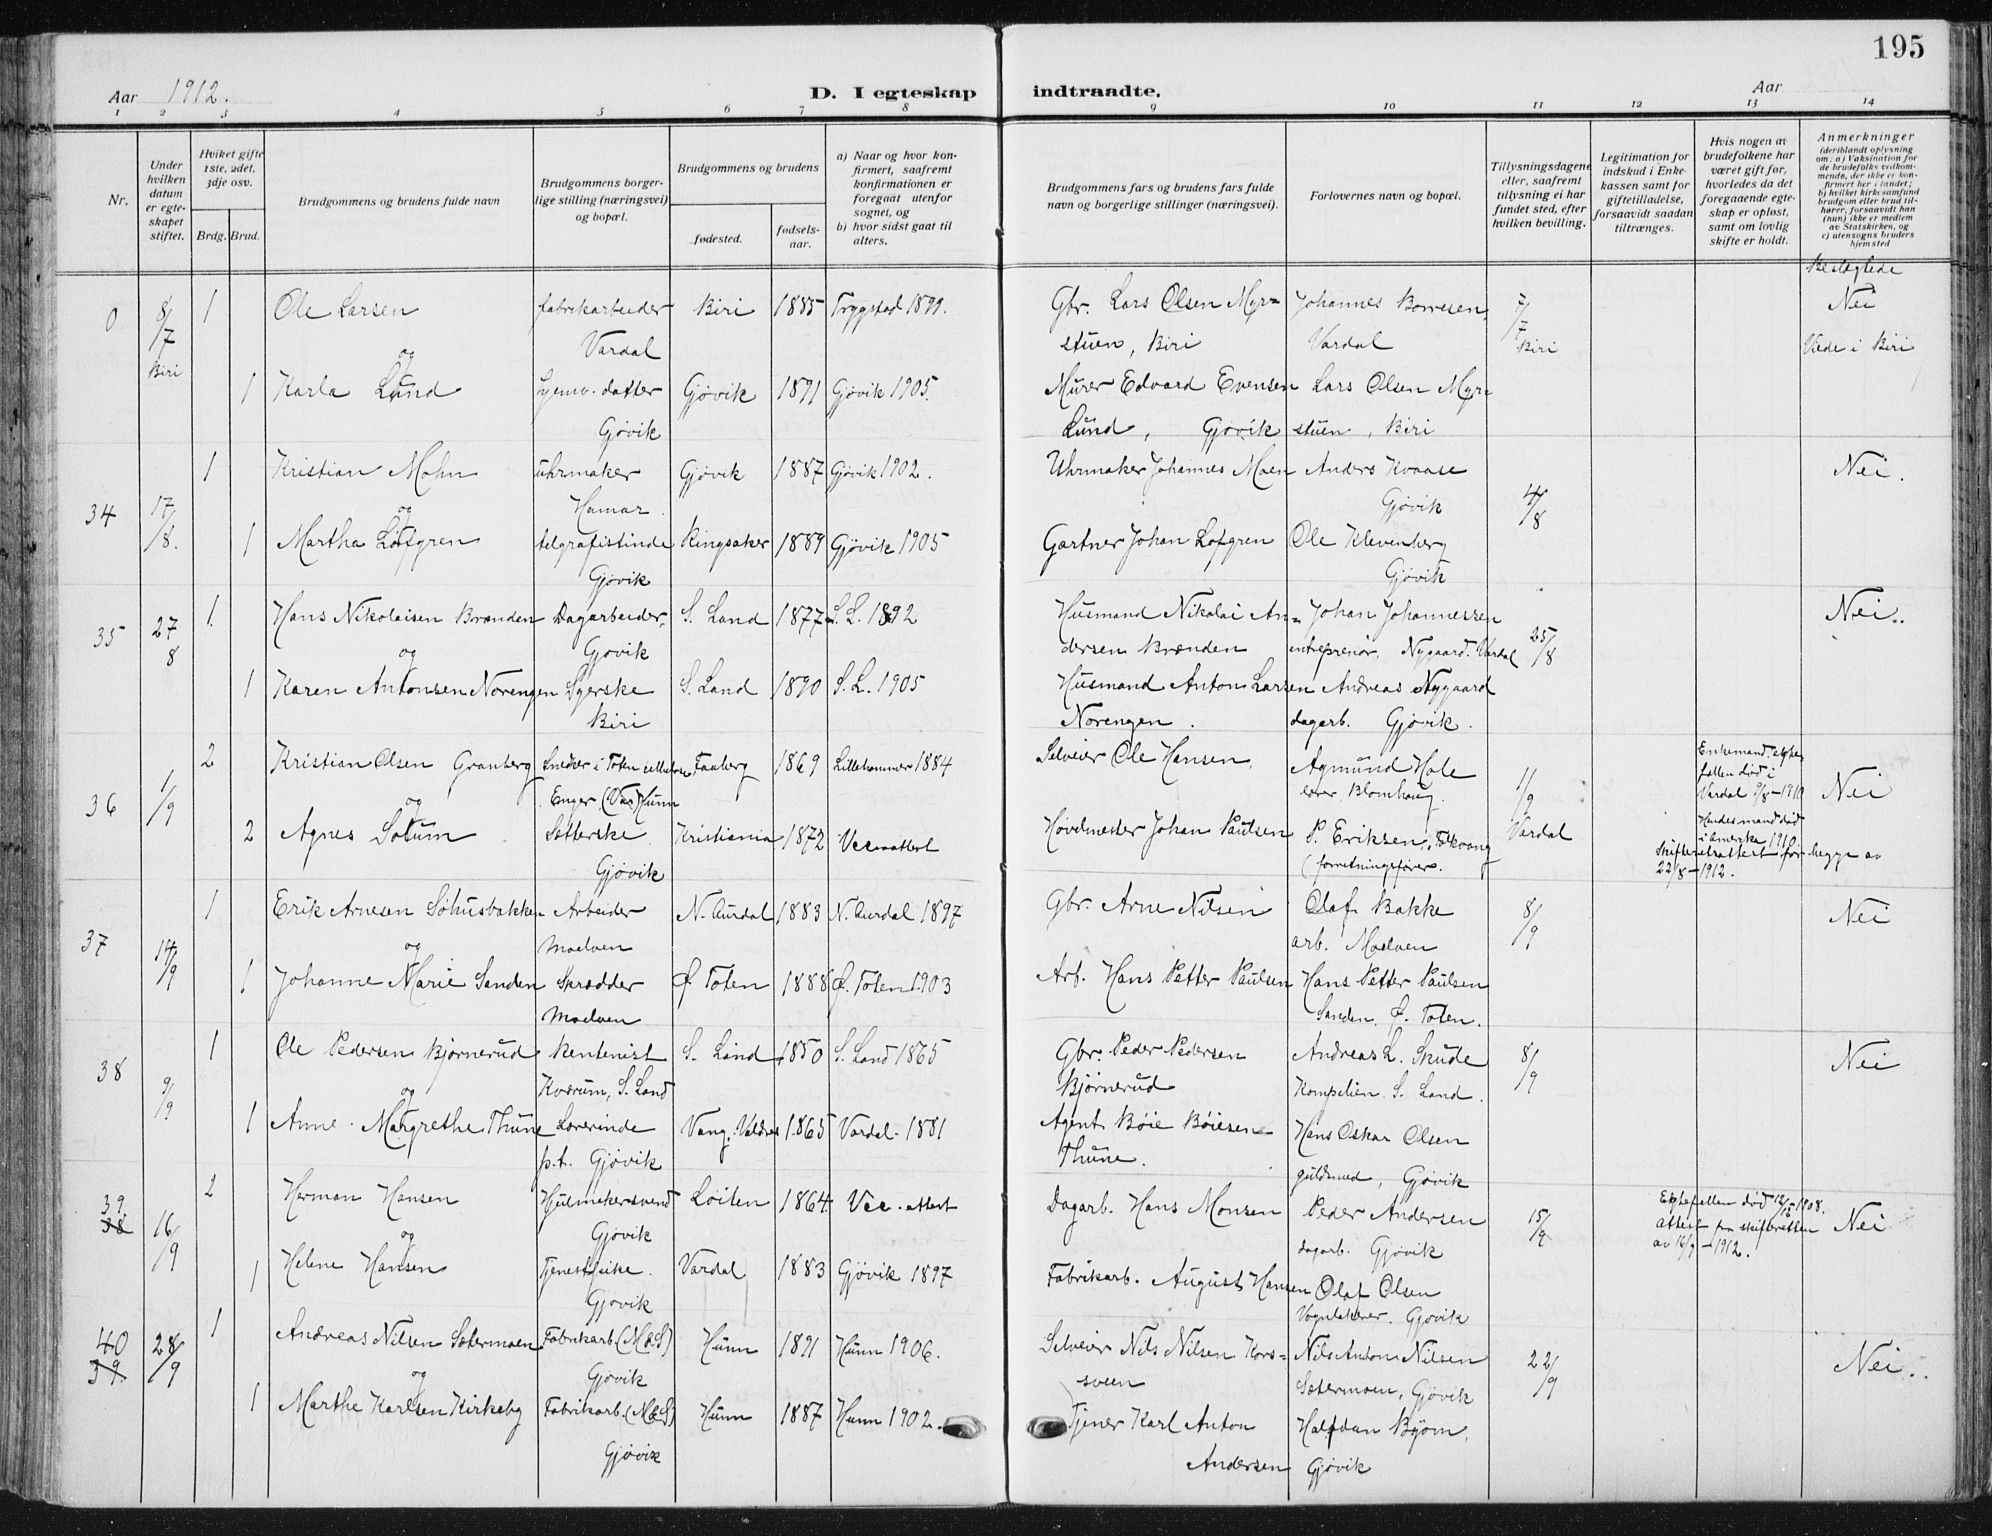 195
Aar 1912.
D. I egteskap indtraadte.
Aar
1 2 3 4 5 6 7 8 9 10 11 12 13 14
Nr.
Under hvilken datum er egteskapet stiftet.
Hviket gifte 1ste, 2det, 3dje osv.
Brdg. Brud.
Brudgommens og brudens fulde navn
Brudgommens borgerlige stilling (næringsvei) og bopæl.
Brudgommens og brudens
fødested.
fødselsaar.
a) Naar og hvor konfirmert, saafremt konfirmationen er foregaat utenfor sognet, og
b) hvor sidst gaat til alters.
Brudgommens fars og brudens fars fulde navn og borgerlige stillinger (næringsvei).
Forlovernes navn og bopæl.
Tillysningsdagene eller, saafremt tillysning ei har fundet sted, efter hvilken bevilling.
Legitimation for indskud i Enkekassen samt for giftetilladelse, forsaavidt saadan tiltrænges.
Hvis nogen av brudefolkene har været gift før, hvorledes da det foregaaende egteskap er opløst, samt om lovlig skifte er holdt.
Anmerkninger (deriblandt oplysning om: a) Vaksination for de brudefolks vedkommende, der ikke er konfirmert her i landet; b) hvilket kirkesamfund brudgom eller brud tilhører, forsaavidt han (hun) ikke er medlem av Statskirken, og c) utensogns bruders hjemsted
Beslegtede
0 8/7 Biri 1 Ole Larsen fabrikarbeider Biri 1885 Trygstad 1899. Gbr. Lars Olsen Myr= Johannes Borresen, 7/7 Nei
og Vardal stuen, Biri Vardal Biri Viede i Biri
1 Karla Lund datter Gjøvik 1891 Gjøvik 1905. Murer Edvard Evensen Lars Olsen Myr=
Gjøvik Lund, Gjøvik stuen, Biri
34 17/8. 1 Kristian Mohn uhrmaker Gjøvik 1887 Gjøvik 1902. Uhrmaker Johannes Moen Anders Kvaase 4/8 Nei.
og Hamar. Gjøvik
1 Martha Løfgren telgrafistinde Ringsaker 1889 Gjøvik 1905 Gartner Johan Løfgren Ole Klevenberg
Gjøvik Gjøvik
35 27/8 1. Hans Nikolaisen Brænden Dagarbeider, S. Land 1877 S.L. 1892 Husmand Nikolai An= Johan Johannessen 25/8 Nei..
og Gjøvik dersen Brænden entreprenør, Nygaard. Vardal
1 Karen Antonsen Norengen Syerske S. Land 1890 S.L. 1905 Husmand Anton Larsen Andreas Nygaard
Biri Norengen. dagarb. Gjøvik.
36 1/9 2 Kristian Olsen Granberg Snedker i Toten Faaberg 1869 Lillehammer 1884 Selveier Ole Hansen, Agmund Hole 1/9 Enkemand, egte Nei
og Enger, (Var) Hunn lærer, Blomhaug. Vardal fællen død i Vardal 9/8-1910
2 Agnes Solum Sætterske Kristiania 1872 Vee attest Høvelmester Johan Paulsen P. Eriksen, Hendes mand død i Amerika 1910
Gjøvik (forretningsfører. skifteretsattest for begge av 22/8-1912.
37 14/9 1 Erik Arnesen Søhusbakken Arbeider N. Aurdal 1883 N. Aurdal 1897 Gbr. Arne Nilsen Olaf Bakke 8/9 Nei
og Moelven arb. Moelven
1 Johanne Marie Sanden Skrædder Ø. Toten 1888 Ø. Toten 1903 Arb. Hans Petter Paulsen Hans Petter Paulsen
Moelven Sanden, Ø. Toten.
38 9/9 1 Ole Pedersen Bjørnerud Rentenist S. Land 1850 S. Land 1865 Gbr. Peder Pedersen Andreas L. Skude 8/9 Nei
og Kværum, S. Land Bjørnerud Kompelien S. Land.
1 Anne Margrethe Thune Lærerinde Vang, Valdres 1865 Vardal 1881 Agent Bøie Bøiesen Hans Oskar Olsen
p.t. Gjøvik Thune. guldsmed, Gjøvik
39 38 16/9 2 Herman Hansen Hjulmakersvend Løiten 1864 Vee attest Dagarb. Hans Monsen Peder Andersen 15/9 Egtefællen død 1908. Nei
og Gjøvik dagarb. Gjøvik Attest fra skifteretten av 16/9-1912.
1 Helene Hansen Tjenestpike. Vardal 1883 Gjøvik 1897 Fabrikarb. August Hansen Olaf Olsen
Gjøvik Vognlakerer. Gjøvik
40 39. 28/9 1 Andreas Nilsen Sætermoen Fabrikarb. (M&S) Hunn 1891 Hunn 1906. Selveier Nils Nilsen Kors= Nils Anton Nilsen 22/9 Nei..
og Gjøvik sveen Sætermoen, Gjøvik
1 Marthe Karlsen Kirkeby Fabrikarb. (M&S) Hunn 1887 Hunn 1902. Tjener Karl Anton Halfdan Bjørn,
Gjøvik Andersen Gjøvik